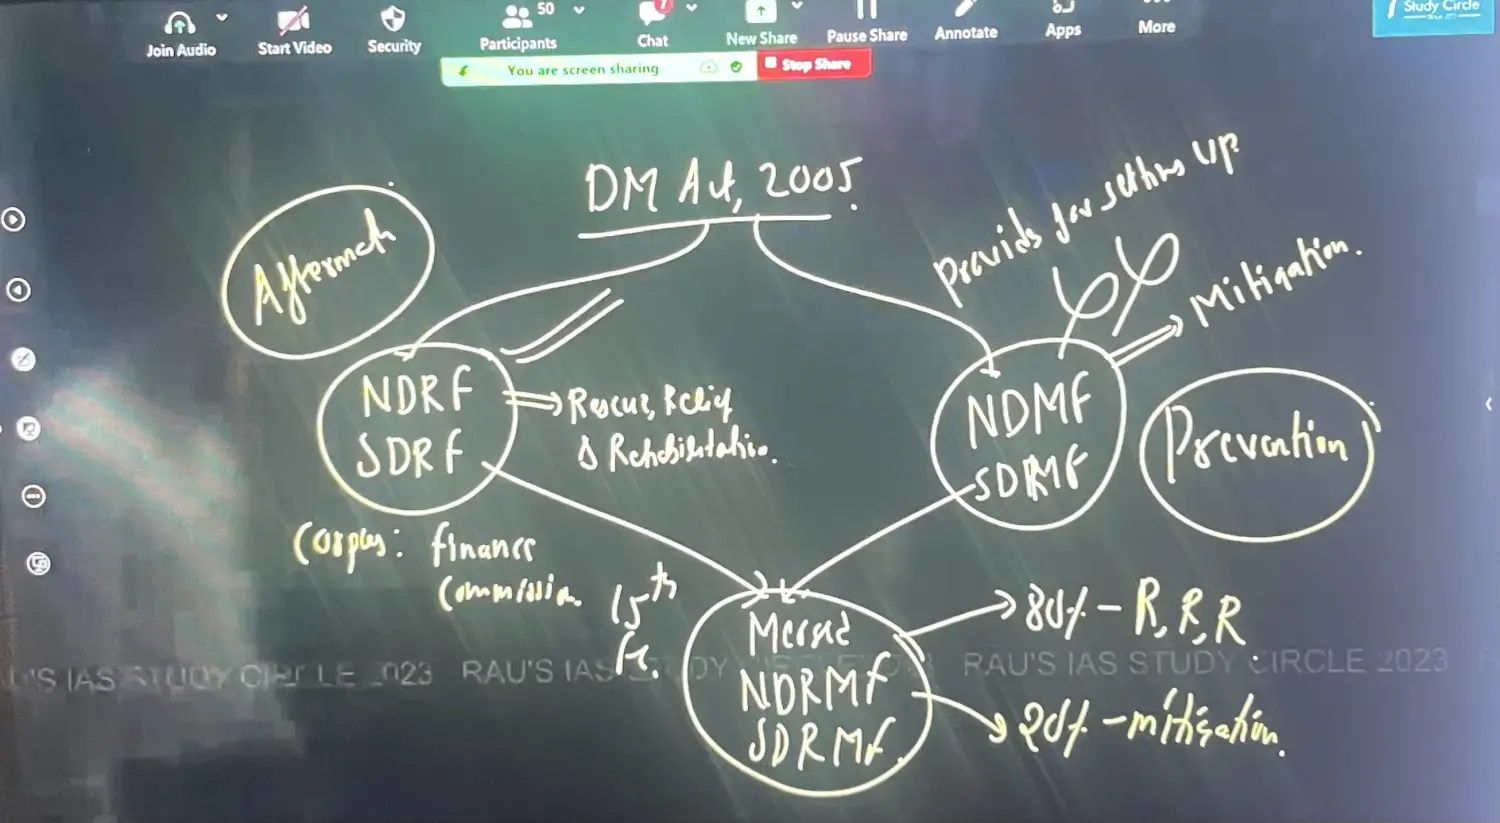 50
7
Join Audio
Start Video
Security
Participants
Chat
New Share
Pause Share
Annotate
Apps
More
Study Circle
You are screen sharing
Stop Share
DM Act, 2005.
Aftermath
Provids for setting up
Mitigation.
NDRF
SDRF
Rescue, Relief
& Rehabilitation.
NDMF
SDMF
Prevention
Corpus: finance
Commission.
15th
Fc.
Merged
NDRMF
SDRMF
80% - R, R, R
20% - mitigation.
U'S IAS STUDY CIRCLE 2023 RAU'S IAS STUDY CIRCLE 2023 RAU'S IAS STUDY CIRCLE 2023